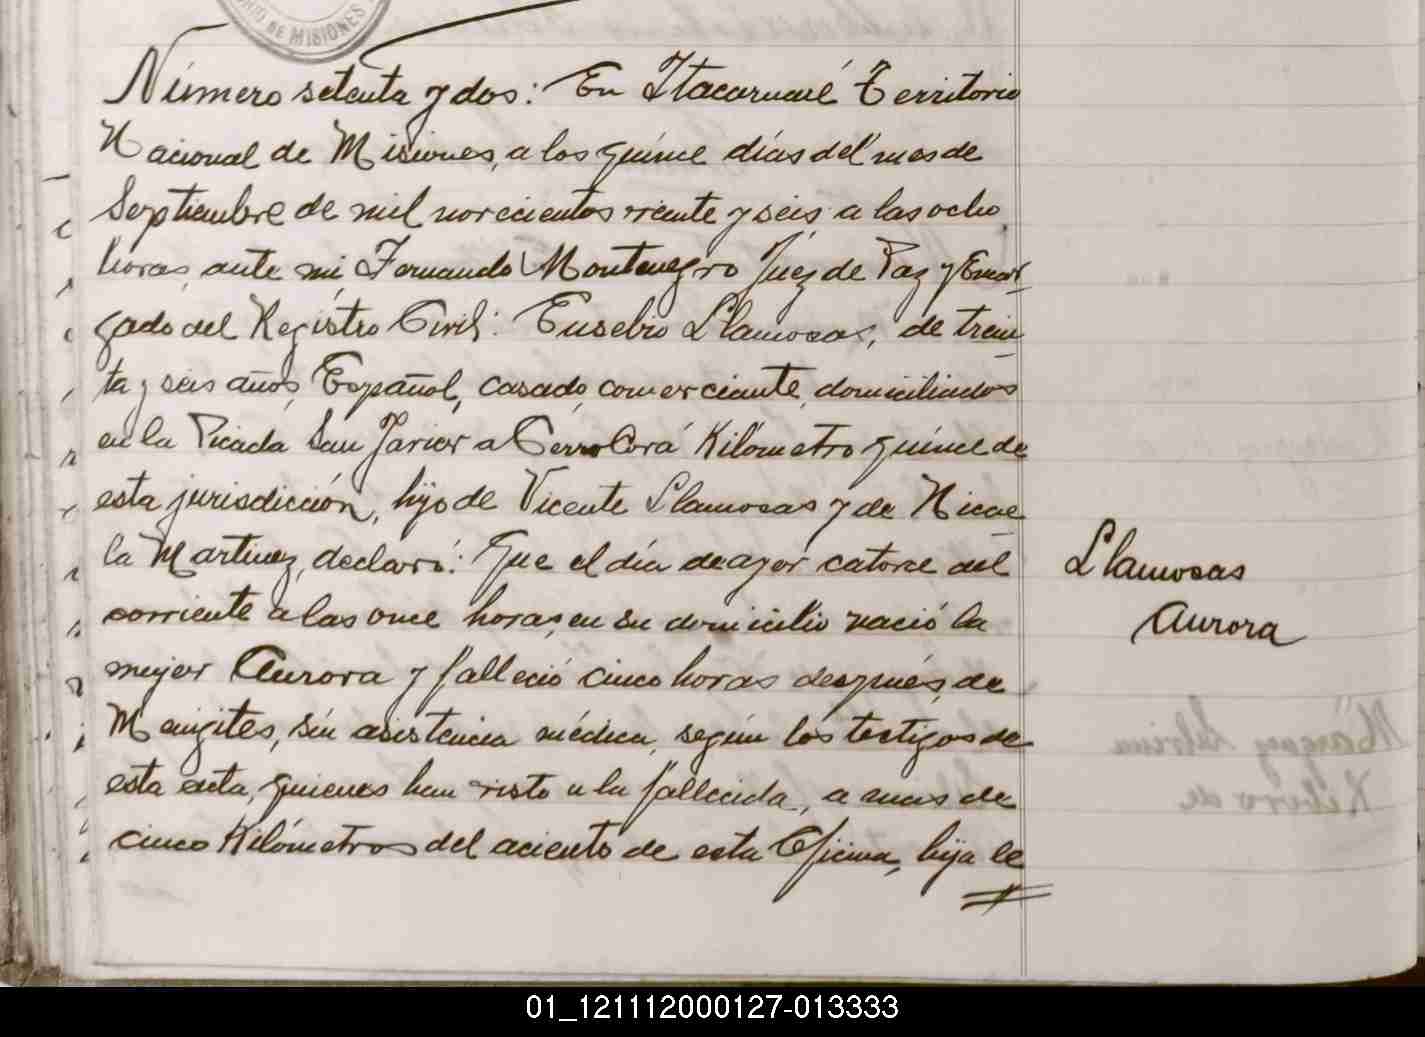 DE MISIONES
Número setenta y dos: En Itacaruaré Territorio
Nacional de Misiones, a los quince días del mes de
Septiembre de mil novecientos veinte y seis a las ocho
horas, ante mi, Fernando Montenegro Juez de Paz y Encar-
gado del Registro Civil: Eusebio Llamosas, de trein-
ta y seis años, Español, casado, comerciante, domiciliados
en la Picada San Javier a Cerro Corá Kilómetro quince de
esta jurisdicción, hijo de Vicente Llamosas y de Nicae-
la Martinez, declaró: Que el día de ayer catorce del
corriente a las once horas, en su domicilio nació la
mujer Aurora y falleció cinco horas después, de
Mengites, sin asistencia médica, según los testigos de
esta acta, quienes han visto a la fallecida, a mas de
cinco Kilómetros del aciento de esta Oficina, hija le
Llamosas
Aurora
01_121112000127-013333